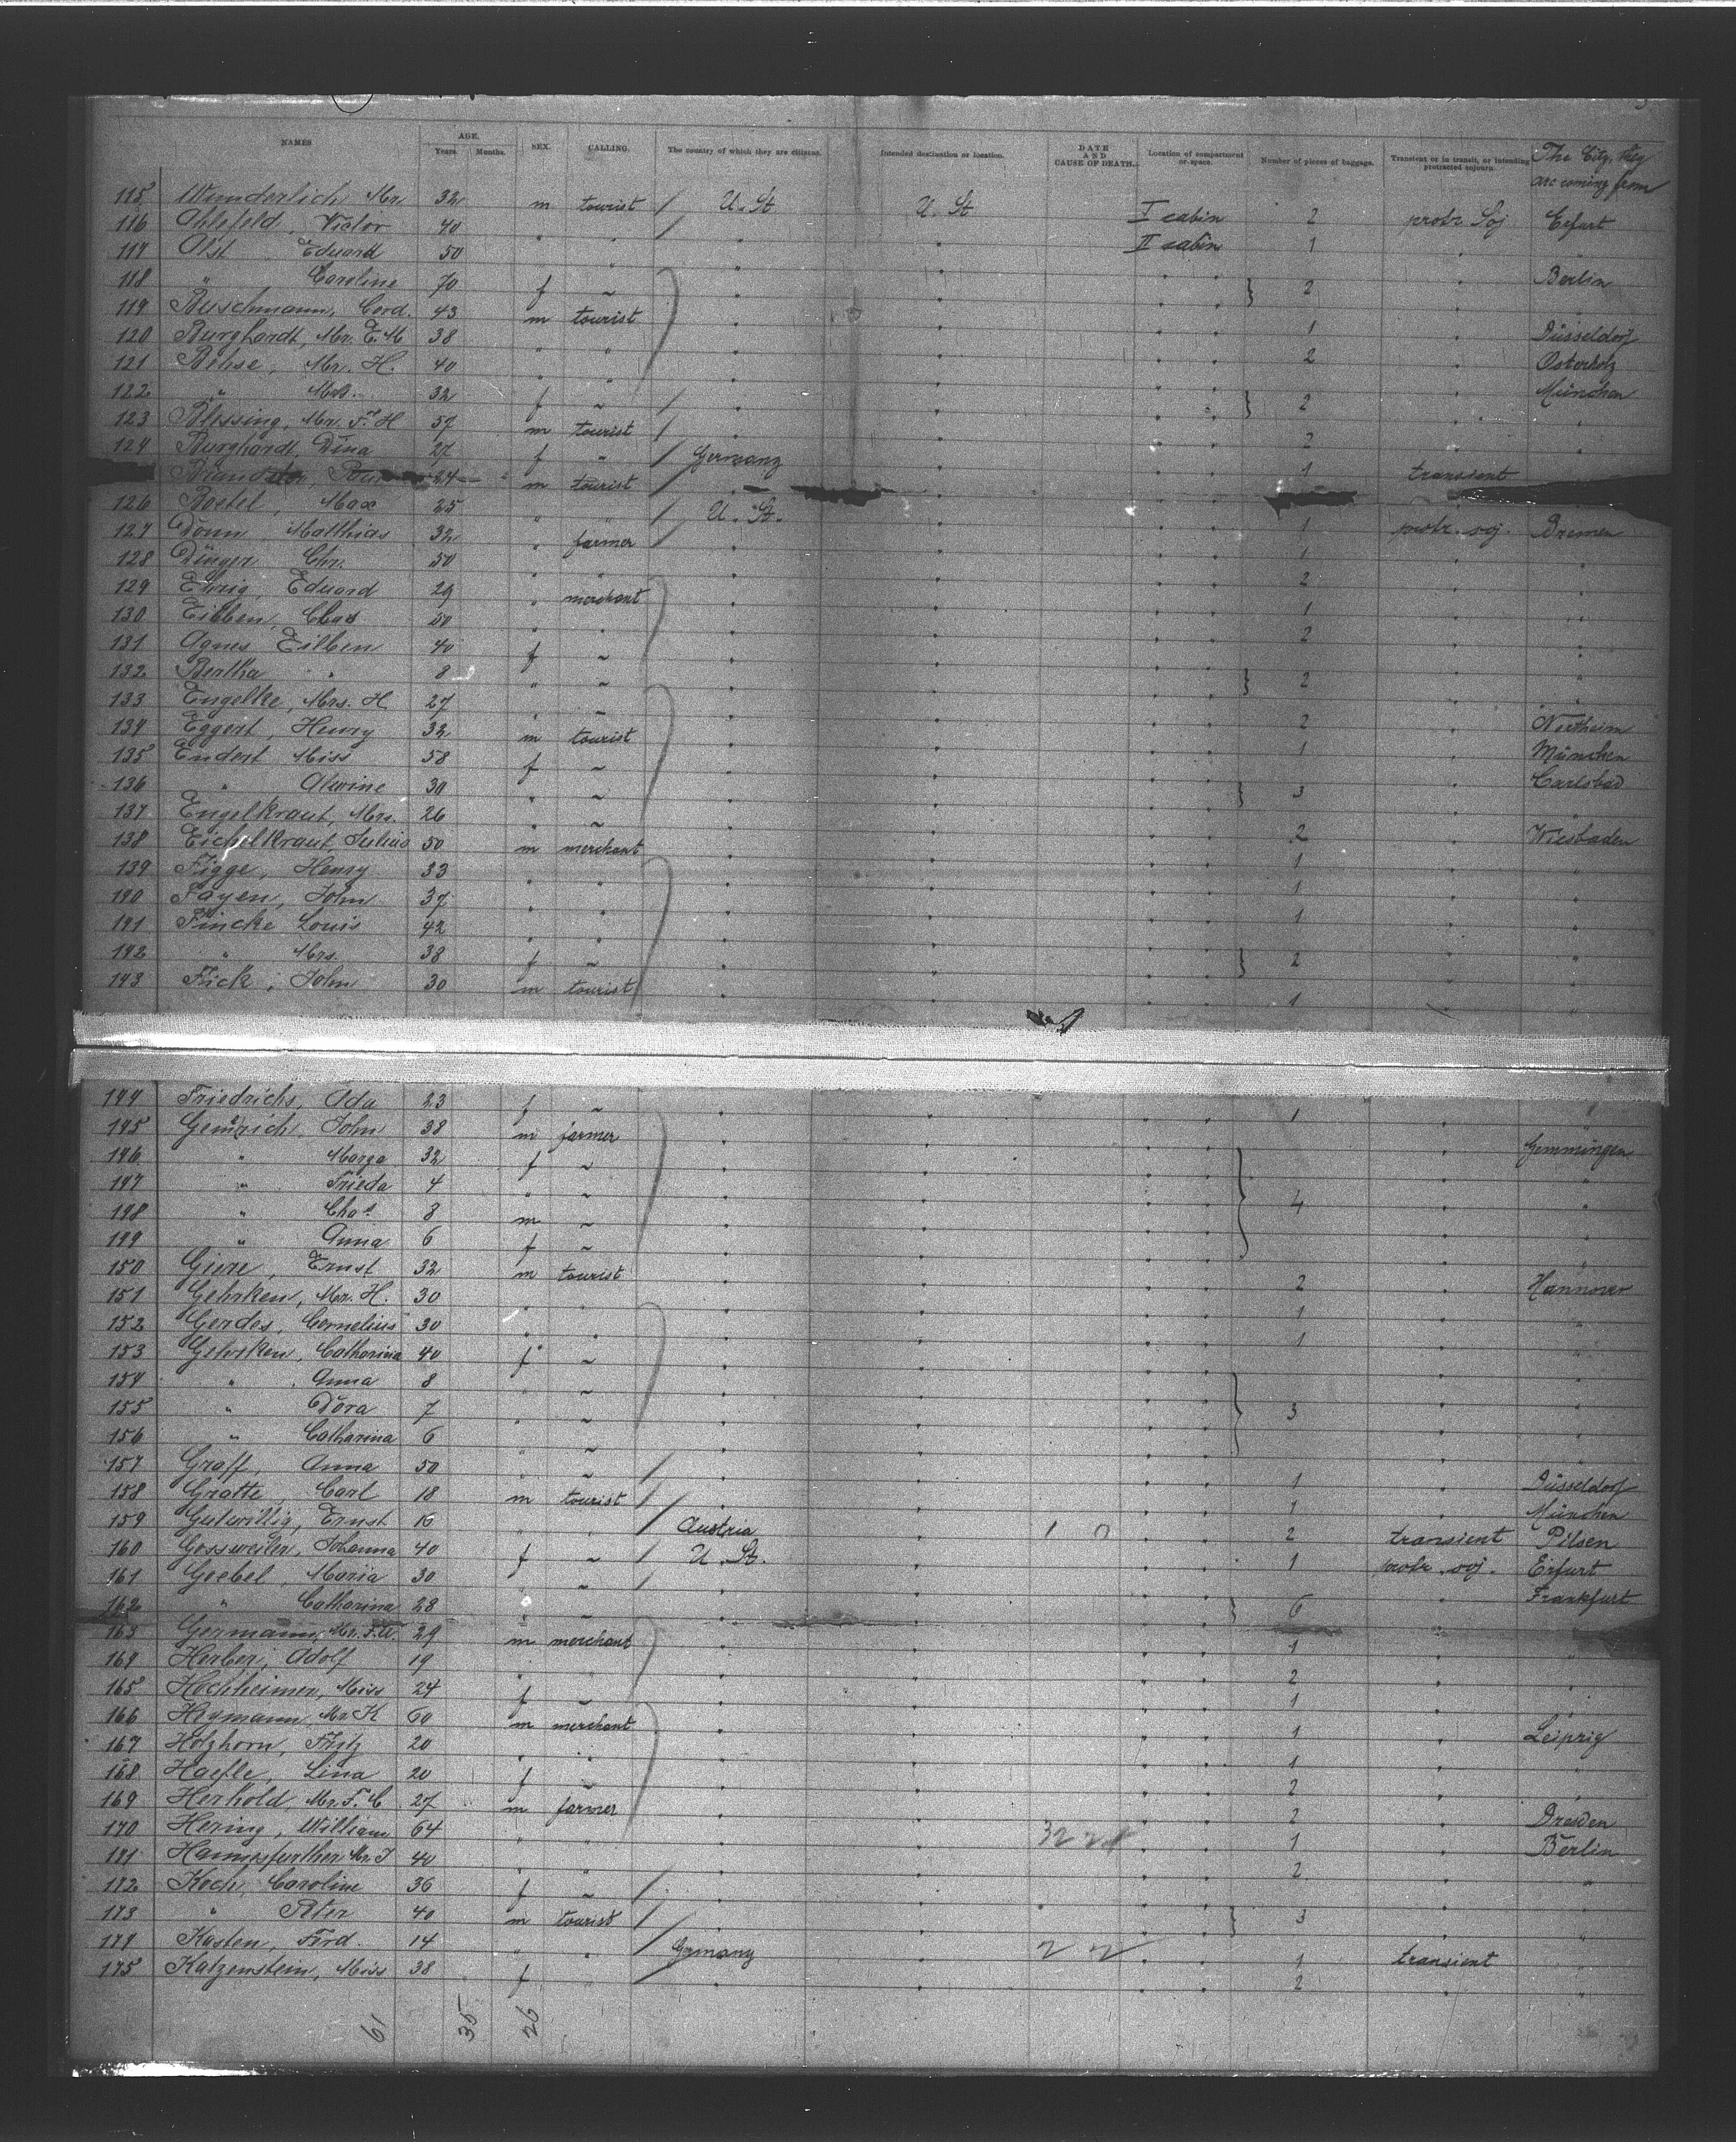 NAMES AGE. Years. Months. SEX. CALLING. The country of which they are citizens. Intended destination or location. DATE AND CAUSE OF DEATH. Location of compartment or space. Number of pieces of baggage. Transient or in transit, or intending protracted sojourn. The City, they are coming from
115 Wunderlich Mr. 32 m tourist U. St U. St I cabin 2 protr Soj Erfurt
116 Ahlefeld, Victor 40 " " " " II cabin 1 " "
117 Obst Eduard 50 " " " " " " Berlin
118 " Caroline 70 f ~ " " " 2 " "
119 Buschmann, Cord. 43 m tourist " " " 1 " Düsseldorf
120 Burghardt, Mr. E. M 38 " " " " " 2 " Osterholz
121 Behse, Mr. H. 40 " " " " " " München
122 " Mrs. 32 f ~ " " " 2 " "
123 Blessing, Mr. F. H 57 m tourist " " " 2 " "
124 Burghardt, Dina 27 f " Germany " " 1 transient
24 m tourist "
126 Boetel, Max 25 " " U. St. " " 1 protr. soj. Bremen
127 Donn Matthias 32 " farmer " " " 1 " "
128 Dünger Chr. 50 " " " " " 2 " "
129 Ehrig, Eduard 29 " merchant " " " 1 " "
130 Eibben, Chas 50 " " " " " 2 " "
131 Agnes Eilben 40 f ~ " " " " "
132 Bertha " 8 " ~ " " " 2 " "
133 Engelke, Mrs. H. 27 " ~ " " " 2 " Northeim
134 Eggert, Henry 32 m tourist " " " 1 " München
135 Endert Miss 58 f ~ " " " " Carlsbad
136 " Alwine 30 " ~ " " " 3 " "
137 Engelkraut, Mrs. 26 " ~ " " " 2 " Wiesbaden
138 Eichelkraut, Julius 50 m merchant " " " 1 " "
139 Figge, Henry 33 " " " " " 1 " "
140 Fayen, John 37 " " " " " 1 " "
141 Fincke Louis 42 " " " " " " "
142 " Mrs. 38 f ~ " " " 2 " "
143 Fick, John 30 m tourist " " " 1 " "
144 Friedrichs, Ada 23 f ~ " " " 1 " "
145 Gemrich, John 38 m farmer " " " " Gemmingen
146 " Marga 32 f ~ " " " " "
147 " Frieda 4 " ~ " " " 4 " "
148 " Chas 8 m ~ " " " " "
149 " Anna 6 f ~ " " " " "
150 Giere, Ernst 32 m tourist " " " 2 " Hannover
151 Gehrken, Mr. H. 30 " " " " " 1 " "
152 Gerdes, Cornelius 30 " " " " " 1 " "
153 Gehrken, Catharina 40 f ~ " " " " "
154 " Anna 8 " ~ " " " " "
155 " Dora 7 " ~ " " " 3 " "
156 " Catharina 6 " ~ " " " " "
157 Graff, Anna 50 " ~ " " " 1 " Düsseldorf
158 Gratte, Carl 18 m tourist " " " 1 " München
159 Gutwillig, Ernst 16 " " Austria " 1 0 " 2 transient Pilsen
160 Gossweiler, Johanna 40 f ~ U. St. " " 1 protr. soj. Erfurt
161 Goebel, Maria 30 " ~ " " " " Frankfurt
162 " Catharina 28 " ~ " " " 6 " "
163 Germann, Mr. F. W. 29 m merchant " " " 1 " "
164 Herber, Adolf 19 " " " " " 2 " "
165 Hochheimer, Miss 24 f ~ " " " 1 " "
166 Heymann, Mr. K 60 m merchant " " " 1 " Leipzig
167 Holzhorn, Fritz 20 " " " " " 1 " "
168 Haefle, Lina 20 f ~ " " " 2 " "
169 Herhold, Mr. F. C. 27 m farmer " " " 2 " Dresden
170 Hering, William 64 " " " " " 1 " Berlin
171 Mr. J 40 " " " " " 2 " "
172 Koch, Caroline 36 f ~ " " " " "
173 " Peter 40 m tourist " " " 3 " "
174 Kasten, Ferd. 14 " " Germany " 2 2 " 1 transient "
175 Katzenstein, Miss 38 f " " " " 2 " "
61 35 26